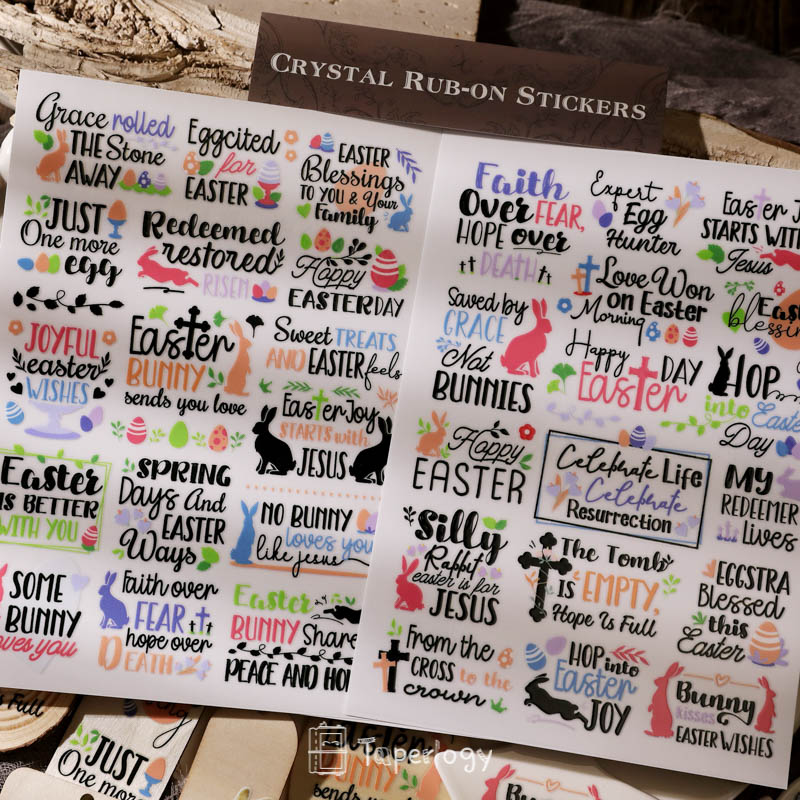 CRYSTAL RUB-ON STICKERS
Grace rolled
THE Stone
AWAY
Eggcited
for
EASTER
EASTER
Blessings
TO YOU & Your
Family
JUST
One more
egg
Redeemed
restored
RISEN
Happy
EASTERDAY
JOYFUL
easter
WISHES
Easter
BUNNY
sends you love
Sweet TREATS
AND EASTER feels
Easter Joy
STARTS with
JESUS
Easter
IS BETTER
WITH YOU
SPRING
Days And
EASTER
Ways
NO BUNNY
loves you
like jesus
SOME
BUNNY
loves you
Faith over
FEAR
hope over
DEATH
Easter
BUNNY Share
PEACE AND HO
Faith
Over FEAR,
HOPE over
DEATH
Expert
Egg
Hunter
Easter J
STARTS WITH
Jesus
Saved by
GRACE
Not
BUNNIES
Love Won
on Easter
Morning
Easte
blessin
Happy
Easter DAY
HOP
into Easter
Day
Happy
EASTER
Celebrate Life
Celebrate
Resurrection
MY
REDEEMER
Lives
Silly
Rabbit
easter is for
JESUS
The Tomb
IS EMPTY,
Hope Is Full
EGGSTRA
Blessed
this
Easter
From the
CROSS to the
crown
HOP into
Easter
JOY
Bunny
kisses
EASTER WISHES
s Full
JUST
One more
BUNNY
sends you
Taperlogy